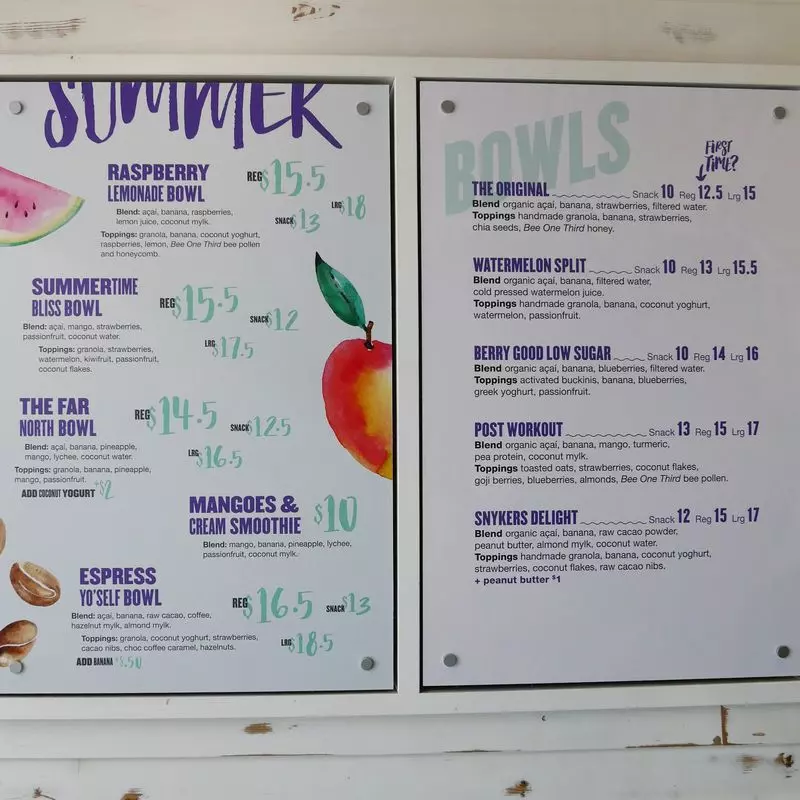 SUMMER
RASPBERRY
LEMONADE BOWL
REG $15.5
LRG $18
SNACK $13
Blend: açaí, banana, raspberries,
lemon juice, coconut mylk.
Toppings: granola, banana, coconut yoghurt,
raspberries, lemon, Bee One Third bee pollen
and honeycomb.
SUMMERTIME
BLISS BOWL
REG $15.5
SNACK $12
LRG $17.5
Blend: açaí, mango, strawberries,
passionfruit, coconut water.
Toppings: granola, strawberries,
watermelon, kiwifruit, passionfruit,
coconut flakes.
THE FAR
NORTH BOWL
REG $14.5
SNACK $12.5
LRG $16.5
Blend: açaí, banana, pineapple,
mango, lychee, coconut water.
Toppings: granola, banana, pineapple,
mango, passionfruit.
ADD COCONUT YOGURT +$2
MANGOES &
CREAM SMOOTHIE $10
Blend: mango, banana, pineapple, lychee,
passionfruit, coconut mylk.
ESPRESS
YO'SELF BOWL
REG $16.5
SNACK $13
LRG $18.5
Blend: açaí, banana, raw cacao, coffee,
hazelnut mylk, almond mylk.
Toppings: granola, coconut yoghurt, strawberries,
cacao nibs, choc coffee caramel, hazelnuts.
ADD BANANA +$.50
BOWLS
FIRST
TIME?
THE ORIGINAL Snack 10 Reg 12.5 Lrg 15
Blend organic açaí, banana, strawberries, filtered water.
Toppings handmade granola, banana, strawberries,
chia seeds, Bee One Third honey.
WATERMELON SPLIT Snack 10 Reg 13 Lrg 15.5
Blend organic açaí, banana, filtered water,
cold pressed watermelon juice.
Toppings handmade granola, banana, coconut yoghurt,
watermelon, passionfruit.
BERRY GOOD LOW SUGAR Snack 10 Reg 14 Lrg 16
Blend organic açaí, banana, blueberries, filtered water.
Toppings activated buckinis, banana, blueberries,
greek yoghurt, passionfruit.
POST WORKOUT Snack 13 Reg 15 Lrg 17
Blend organic açaí, banana, mango, turmeric,
pea protein, coconut mylk.
Toppings toasted oats, strawberries, coconut flakes,
goji berries, blueberries, almonds, Bee One Third bee pollen.
SNYKERS DELIGHT Snack 12 Reg 15 Lrg 17
Blend organic açaí, banana, raw cacao powder,
peanut butter, almond mylk, coconut water.
Toppings handmade granola, banana, coconut yoghurt,
strawberries, coconut flakes, raw cacao nibs.
+ peanut butter $1